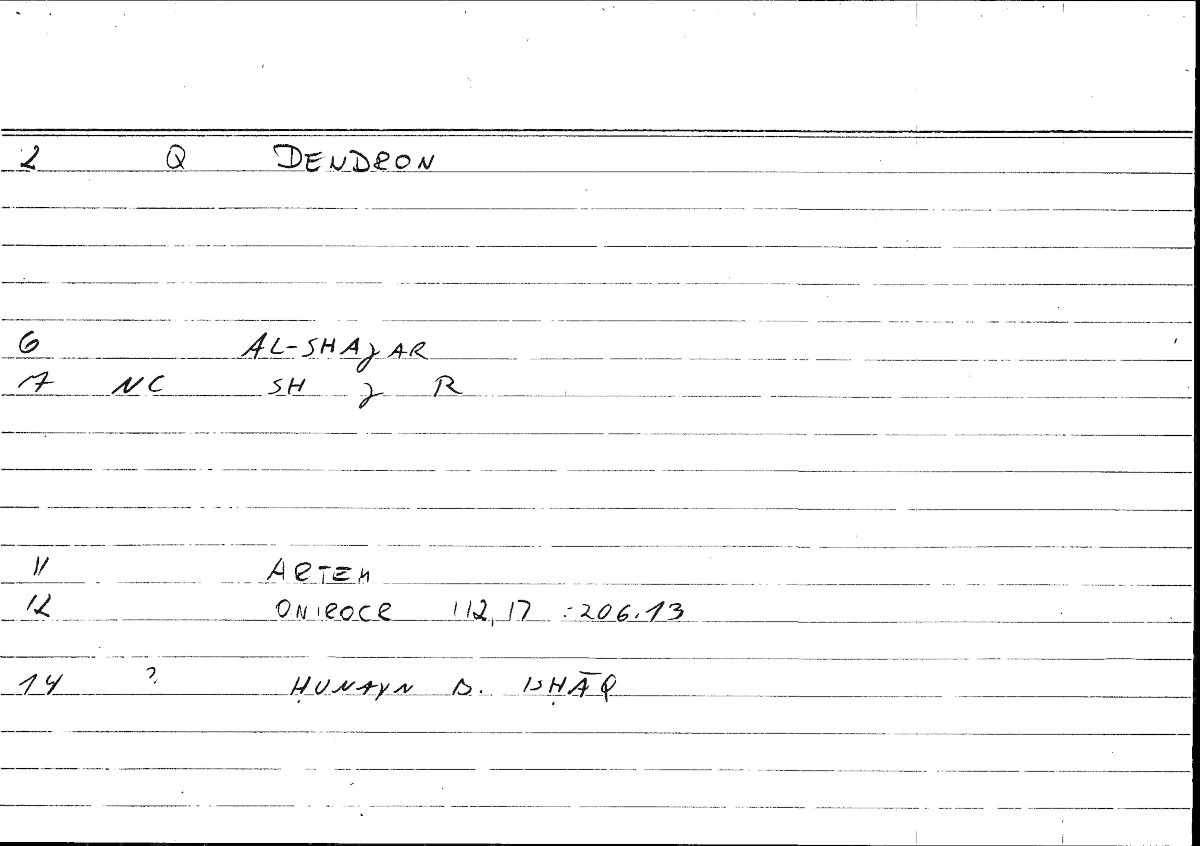 2 Q DENDRON
6 AL-SHAJAR
7 NC SH J R
11 ARTEM
12 ONIROCR 112,17 :206.13
14 ? ḤUNAYN B. ISḤĀQ